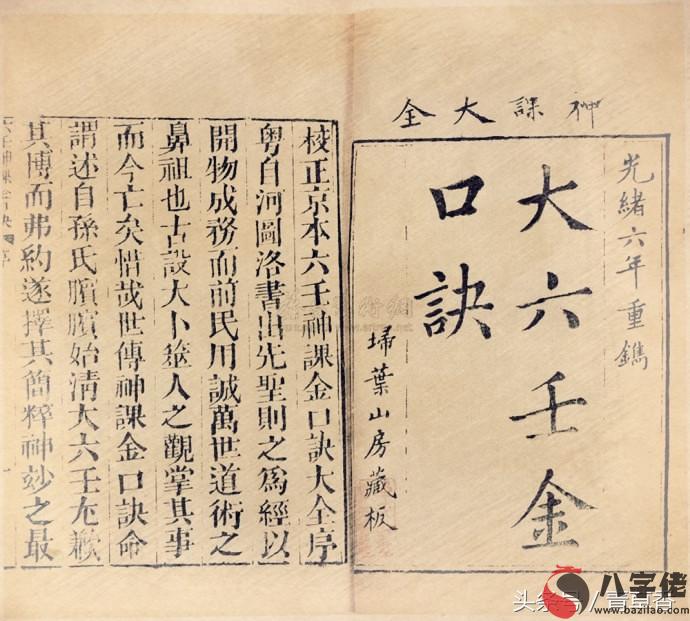 神課大全
光緒六年重鐫
大六壬金
口訣
埽葉山房藏板
校正京本六壬神課金口訣大全序
粵自河圖洛書出先聖則之爲經以
開物成務而前民用誠萬世道術之
鼻祖也古設大卜筮人之觀掌其事
而今亡矣惜哉世傳神課金口訣命
謂述自孫氏臏臏始清大六壬尤歉
其博而弗約遂擇其簡粹神玅之最
八字佬
www.bazilao.com